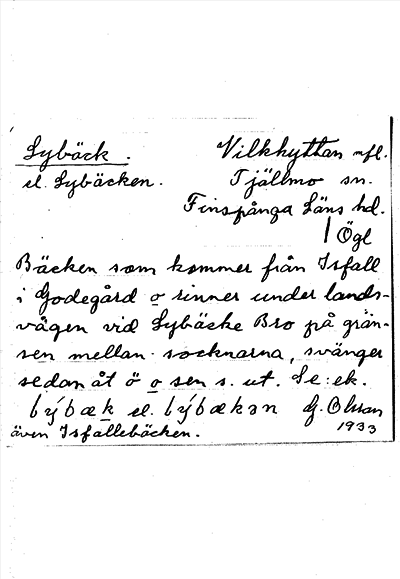 Lybäck. Vilkhyttan nfl.
el. Lybäcken. Tjällmo sn.
Finspånga Läns hd.
Ögl
Bäcken som kommer från Isfall
i Godegård o rinner under lands-
vägen vid Lybäcke Bro på grän-
sen mellan socknarna, svänger
sedan åt ö o sen s. ut. Se: ek.
lýbæk el. lýbækən G. Olsson
även Isfallebäcken. 1933